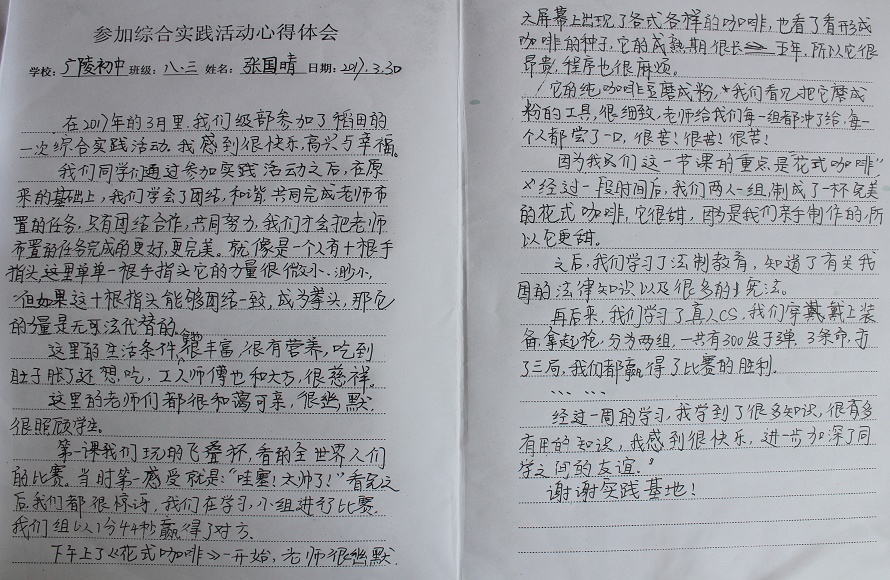 参加综合实践活动心得体会
学校：广陵初中 班级：八.三 姓名：张国晴 日期：2017.3.30
在2017年的3月里，我们级部参加了稻田的
一次综合实践活动，我感到很快乐，高兴与幸福。
我们同学们通过参加实践活动之后，在原
来的基础上，我们学会了团结，和谐，共同完成老师布
置的任务，只有团结合作，共同努力，我们才会把老师
布置的任务完成的更好，更完美。就像是一个人有十根手
指头，这里单单一根手指头它的力量很微小、渺小，
但如果这十根指头能够团结一致，成为拳头，那它
的力量是无可法代替的。
这里的生活条件，很丰富，很有营养，吃到
肚子胀了还想吃，工人师傅也和大方，很慈祥。
这里的老师们都很和蔼可亲，很幽默，
很照顾学生。
第一课我们玩的飞叠杯，看的全世界人们
的比赛。当时第一感受就是：“哇塞！太帅了！”看完之
后我们都很惊讶，我们在学习，小组进行比赛，
我们组以1分44秒赢得了对方。
下午上了《花式咖啡》一开始，老师很幽默，
大屏幕上出现了各式各样的咖啡，也看了看形成
咖啡的种子，它的成熟期很长 五年，所以它很
昂贵，程序也很麻烦。
它的纯咖啡豆磨成粉，我们看见把它磨成
粉的工具，很细致，老师给我们每一组都冲了给，每一
个人都尝了一口，很苦！很苦！很苦！
因为我们这一节课的重点是“花式咖啡”
经过一段时间后，我们两人一组，制成了一杯完美
的花式咖啡，它很甜，因为是我们亲手制作的，所
以它更甜。
之后，我们学习了法制教育，知道了有关我
国的法律知识以及很多的宪法。
再后来，我们学习了真人CS，我们穿戴戴上装
备，拿起枪，分为两组，一共有300发子弹，3条命，
了三局，我们都赢得了比赛的胜利。
……
经过一周的学习，我学到了很多知识，很有多
有用的知识，我感到很快乐，进一步加深了同
学之间的友谊。”
谢谢实践基地！